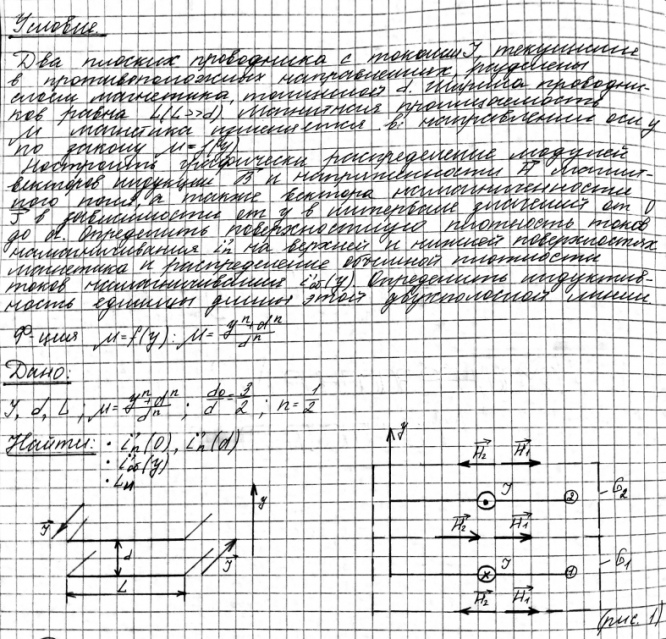 Условие.
Два плоских проводника с токами I, текущими
в противоположных направлениях, разделены
слоем магнетика, толщиной d. Ширина проводни-
ков равна L (L>>d). Магнитная проницаемость
μ магнетика меняется в направлении оси y
по закону μ = f(y).
Построить графически распределение модулей
векторов индукции B⃗ и напряженности H⃗ магнит-
ного поля а также вектора намагниченности
J⃗ в зависимости от y в интервале значений от 0
до d. Определить поверхностную плотность токов
намагничивания i'п на верхней и нижней поверхностях
магнетика и распределение объемной плотности
токов намагничивания i'об(y). Определить индуктив-
ность единицы длины этой двухполосной линии.
Ф-ция μ=f(y): μ = (yⁿ+dⁿ)/dⁿ
Дано:
I, d, L ; μ = (yⁿ+dⁿ)/dⁿ ; d₀/d = 3/2 ; n = 1/2
Найти: · i'п(0), i'п(d)
· i'об(y)
· Lн
y
I⃗
d
I⃗
L
y
H⃗₂ H⃗₁
I
2
G₂
H⃗₂ H⃗₁
I
1
G₁
H⃗₂ H⃗₁
(рис. 1)